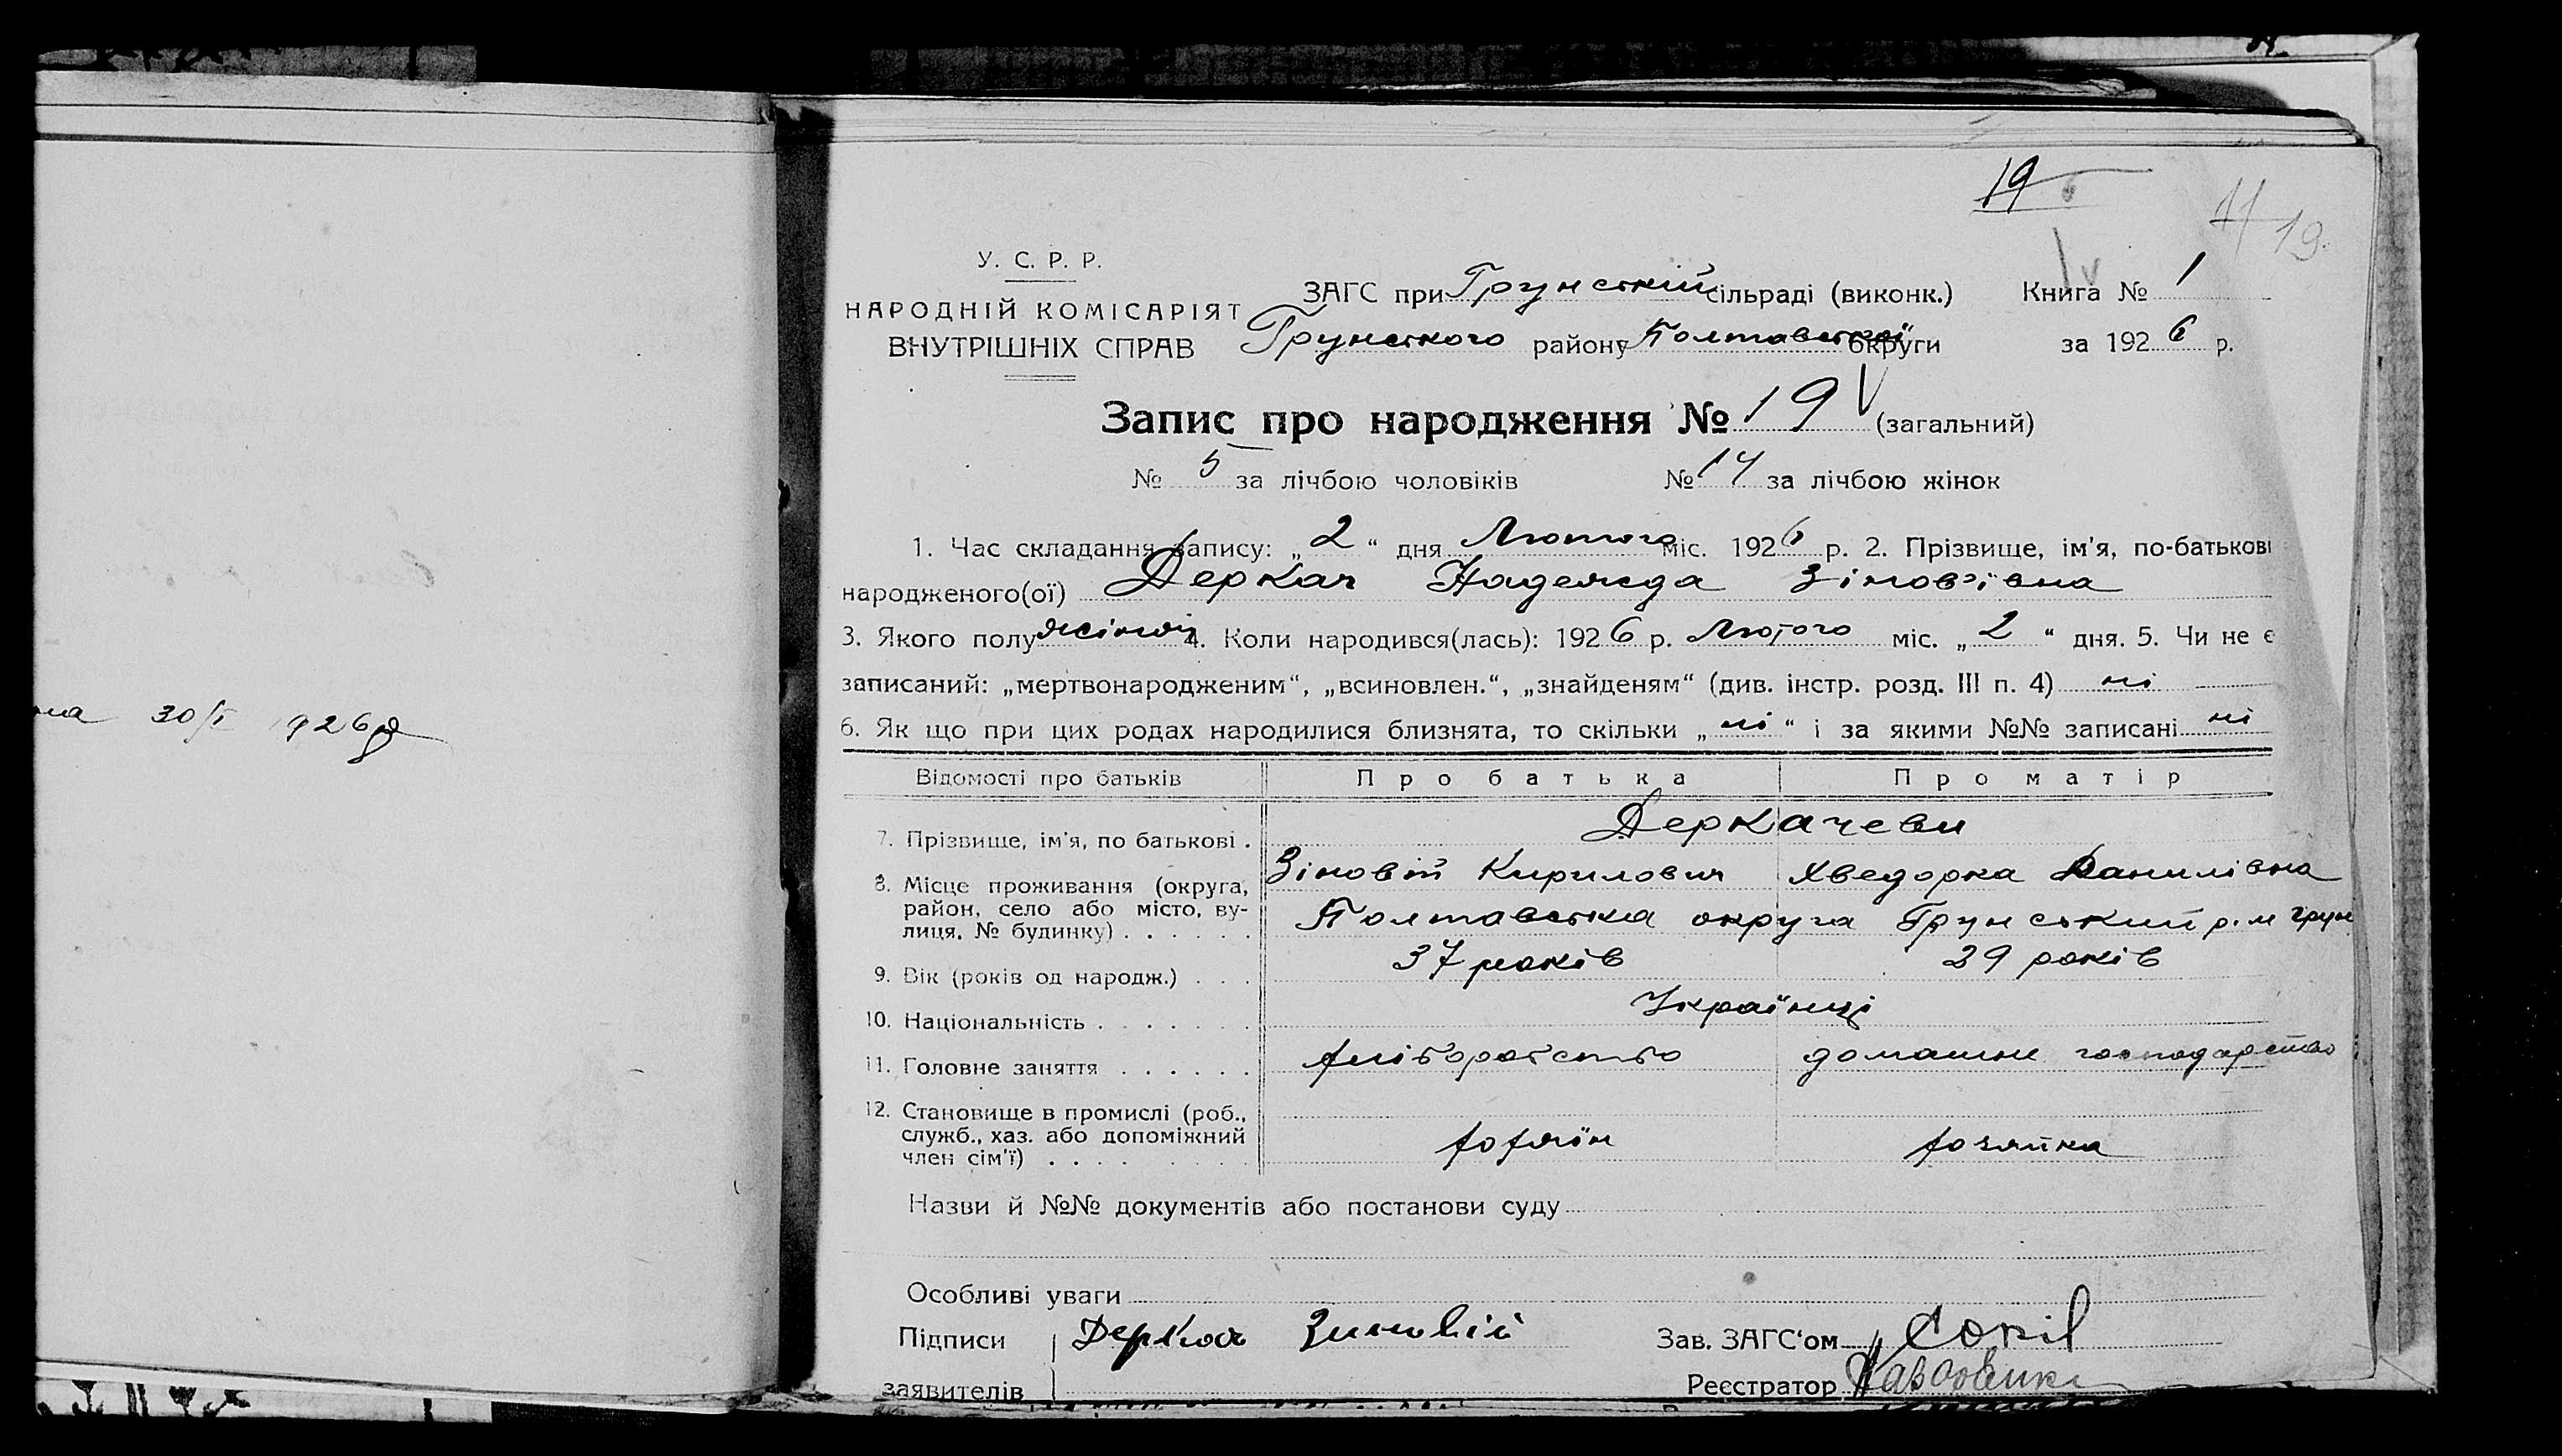 19
11 19.
У. С. Р. Р.
НАРОДНІЙ КОМІСАРІЯТ
ВНУТРІШНІХ СПРАВ
ЗАГС при Грунській сільраді (виконк.) Книга № 1
Грунського району Полтавської округи за 1926 р.
Запис про народження № 19 (загальний)
№ 5 за лічбою чоловіків № 14 за лічбою жінок
1. Час складання запису: „2“ дня Лютого міс. 1926 р. 2. Прізвище, ім'я, по-батькові
народженого(ої) Деркач Надежда Зінов'ївна
3. Якого полу жіночу 4. Коли народився(лась): 1926 р. Лютого міс. „2“ дня. 5. Чи не є
записаний: „мертвонародженим“, „всиновлен.“, „знайденям“ (див. інстр. розд. III п. 4) ні
6. Як що при цих родах народилися близнята, то скільки „ні“ і за якими №№ записані ні
на 30/I 1926 р
Відомості про батьків Про батька Про матір
Деркачеви
7. Прізвище, ім'я, по батькові . Зіновій Кирилович Хведорка Данилівна
8. Місце проживання (округа,
район, село або місто, ву-
лиця, № будинку) . . . . . . Полтавська округа Грунський р. м Грунь
9. Вік (років од народж.) . . . 37 років 29 років
10. Національність . . . . . . . Українці
11. Головне заняття . . . . . . хліборобство домашне господарство
12. Становище в промислі (роб.,
служб., хаз. або допоміжний
член сім'ї) . . . . хозяїн хозяйка
Назви й №№ документів або постанови суду
Особливі уваги
Підписи Деркач Зиновій Зав. ЗАГС'ом Сокіл
заявителів Реєстратор